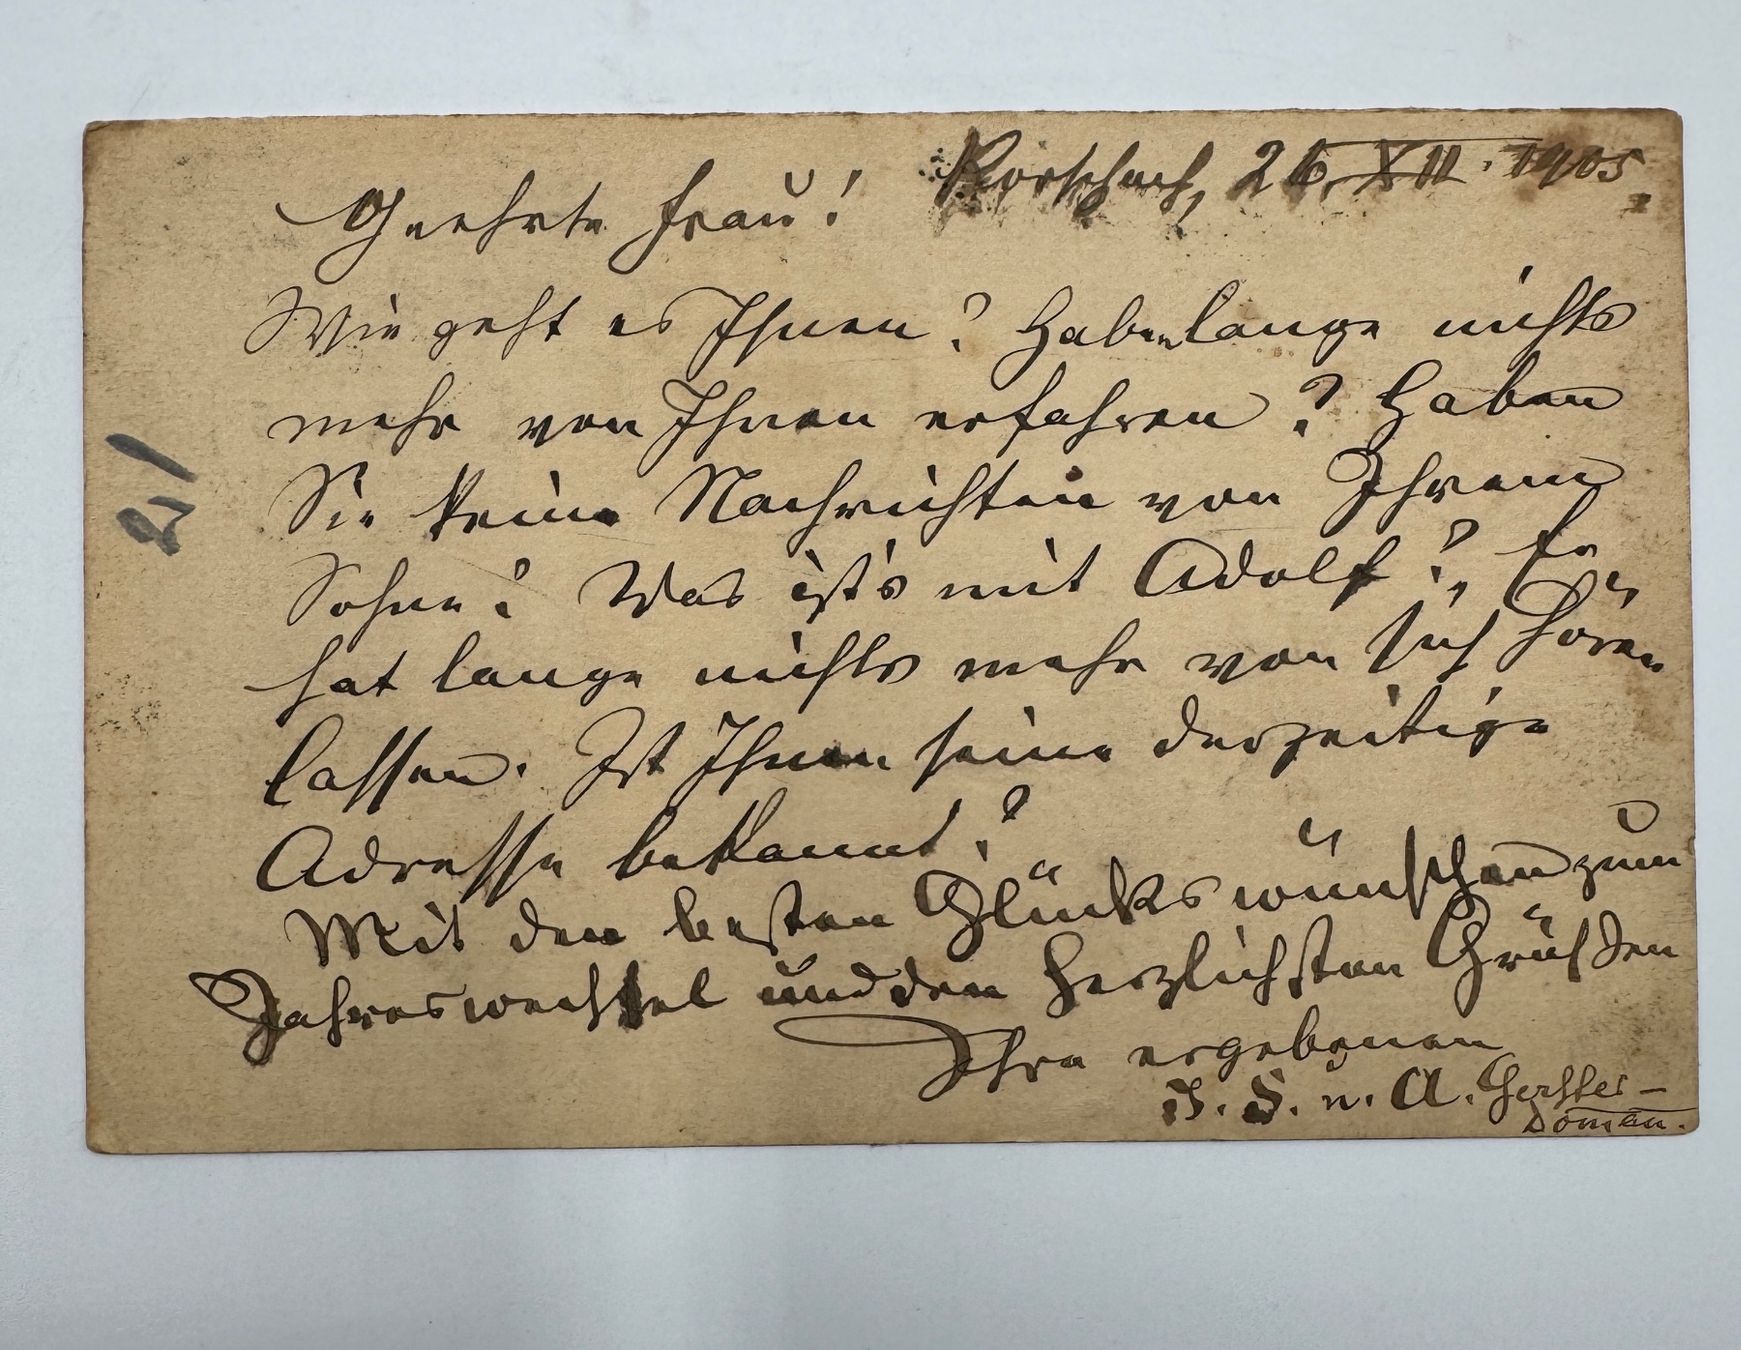 Rorschach, 26. XII. 1905.
Geehrte Frau!
Wie geht es Ihnen? Haben lange nichts
mehr von Ihnen erfahren? Haben
Sie keine Nachrichten von Ihrem
Sohne? Was ist's mit Adolf? Er
hat lange nichts mehr von sich hören
lassen. Ist Ihnen seine derzeitige
Adresse bekannt?
Mit den besten Glückswünschen zum
Jahreswechsel und den herzlichsten Grüßen
Ihre ergebenen
J. S. u. A. Gerster-
21